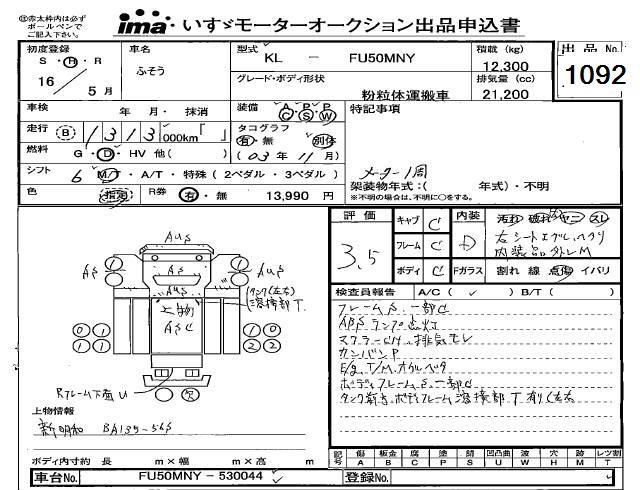 ㊟赤太枠内は必ず
ボールペンで
ご記入下さい。
ima いすゞモーターオークション出品申込書
初度登録 車名 型式 KL - FU50MNY 積載 (kg) 12,300 出品 No.
S・H・R ふそう グレード・ボディ形状 排気量 (cc) 1092
16年 5月 粉粒体運搬車 21,200
車検 年 月・ 抹消 装備 A C P S P W 特記事項
走行 B 1313,000km「 」 タコグラフ
燃料 G・D・HV 他( ) 有・無 別体
(03年 11月) メーター1周
シフト 6 M/T・A/T・特殊 (2ペダル・3ペダル) 架装物年式:( 年式)・不明
色 指定 R券 有・無 13,990 円 ※不明の場合は、不明に○をする。
評価 キャブ C 内装 汚れ 破れ ヤニ スレ
3.5 フレーム C D 右シートエグレ、ヘタリ
内装品外レM
ボディ C Fガラス 割れ 線 点傷 イバリ
検査員報告 A/C ( ✓ )・B/T ( )
フレームS、一部C
ABSランプ点灯
マフラーCH、排気モレ
カンバンP
E/g、T/M、オイルベタ
ボディフレームS、一部C
AUS
AS AUS
AUS
上物
ASC
タンク(左右)
溶接部T
1 1 1 0
1 1 2 2
Rフレーム下面U
欠
上物情報
新明和 BA135-56S
ボディ内寸約 長 m×幅 m×高 m
記号 傷 板金 腐 塗 錆 凹凸曲 波 穴 歩 レツ割
A B C P S U W H M T
車台No. FU50MNY-530044 ✓ 登録No.